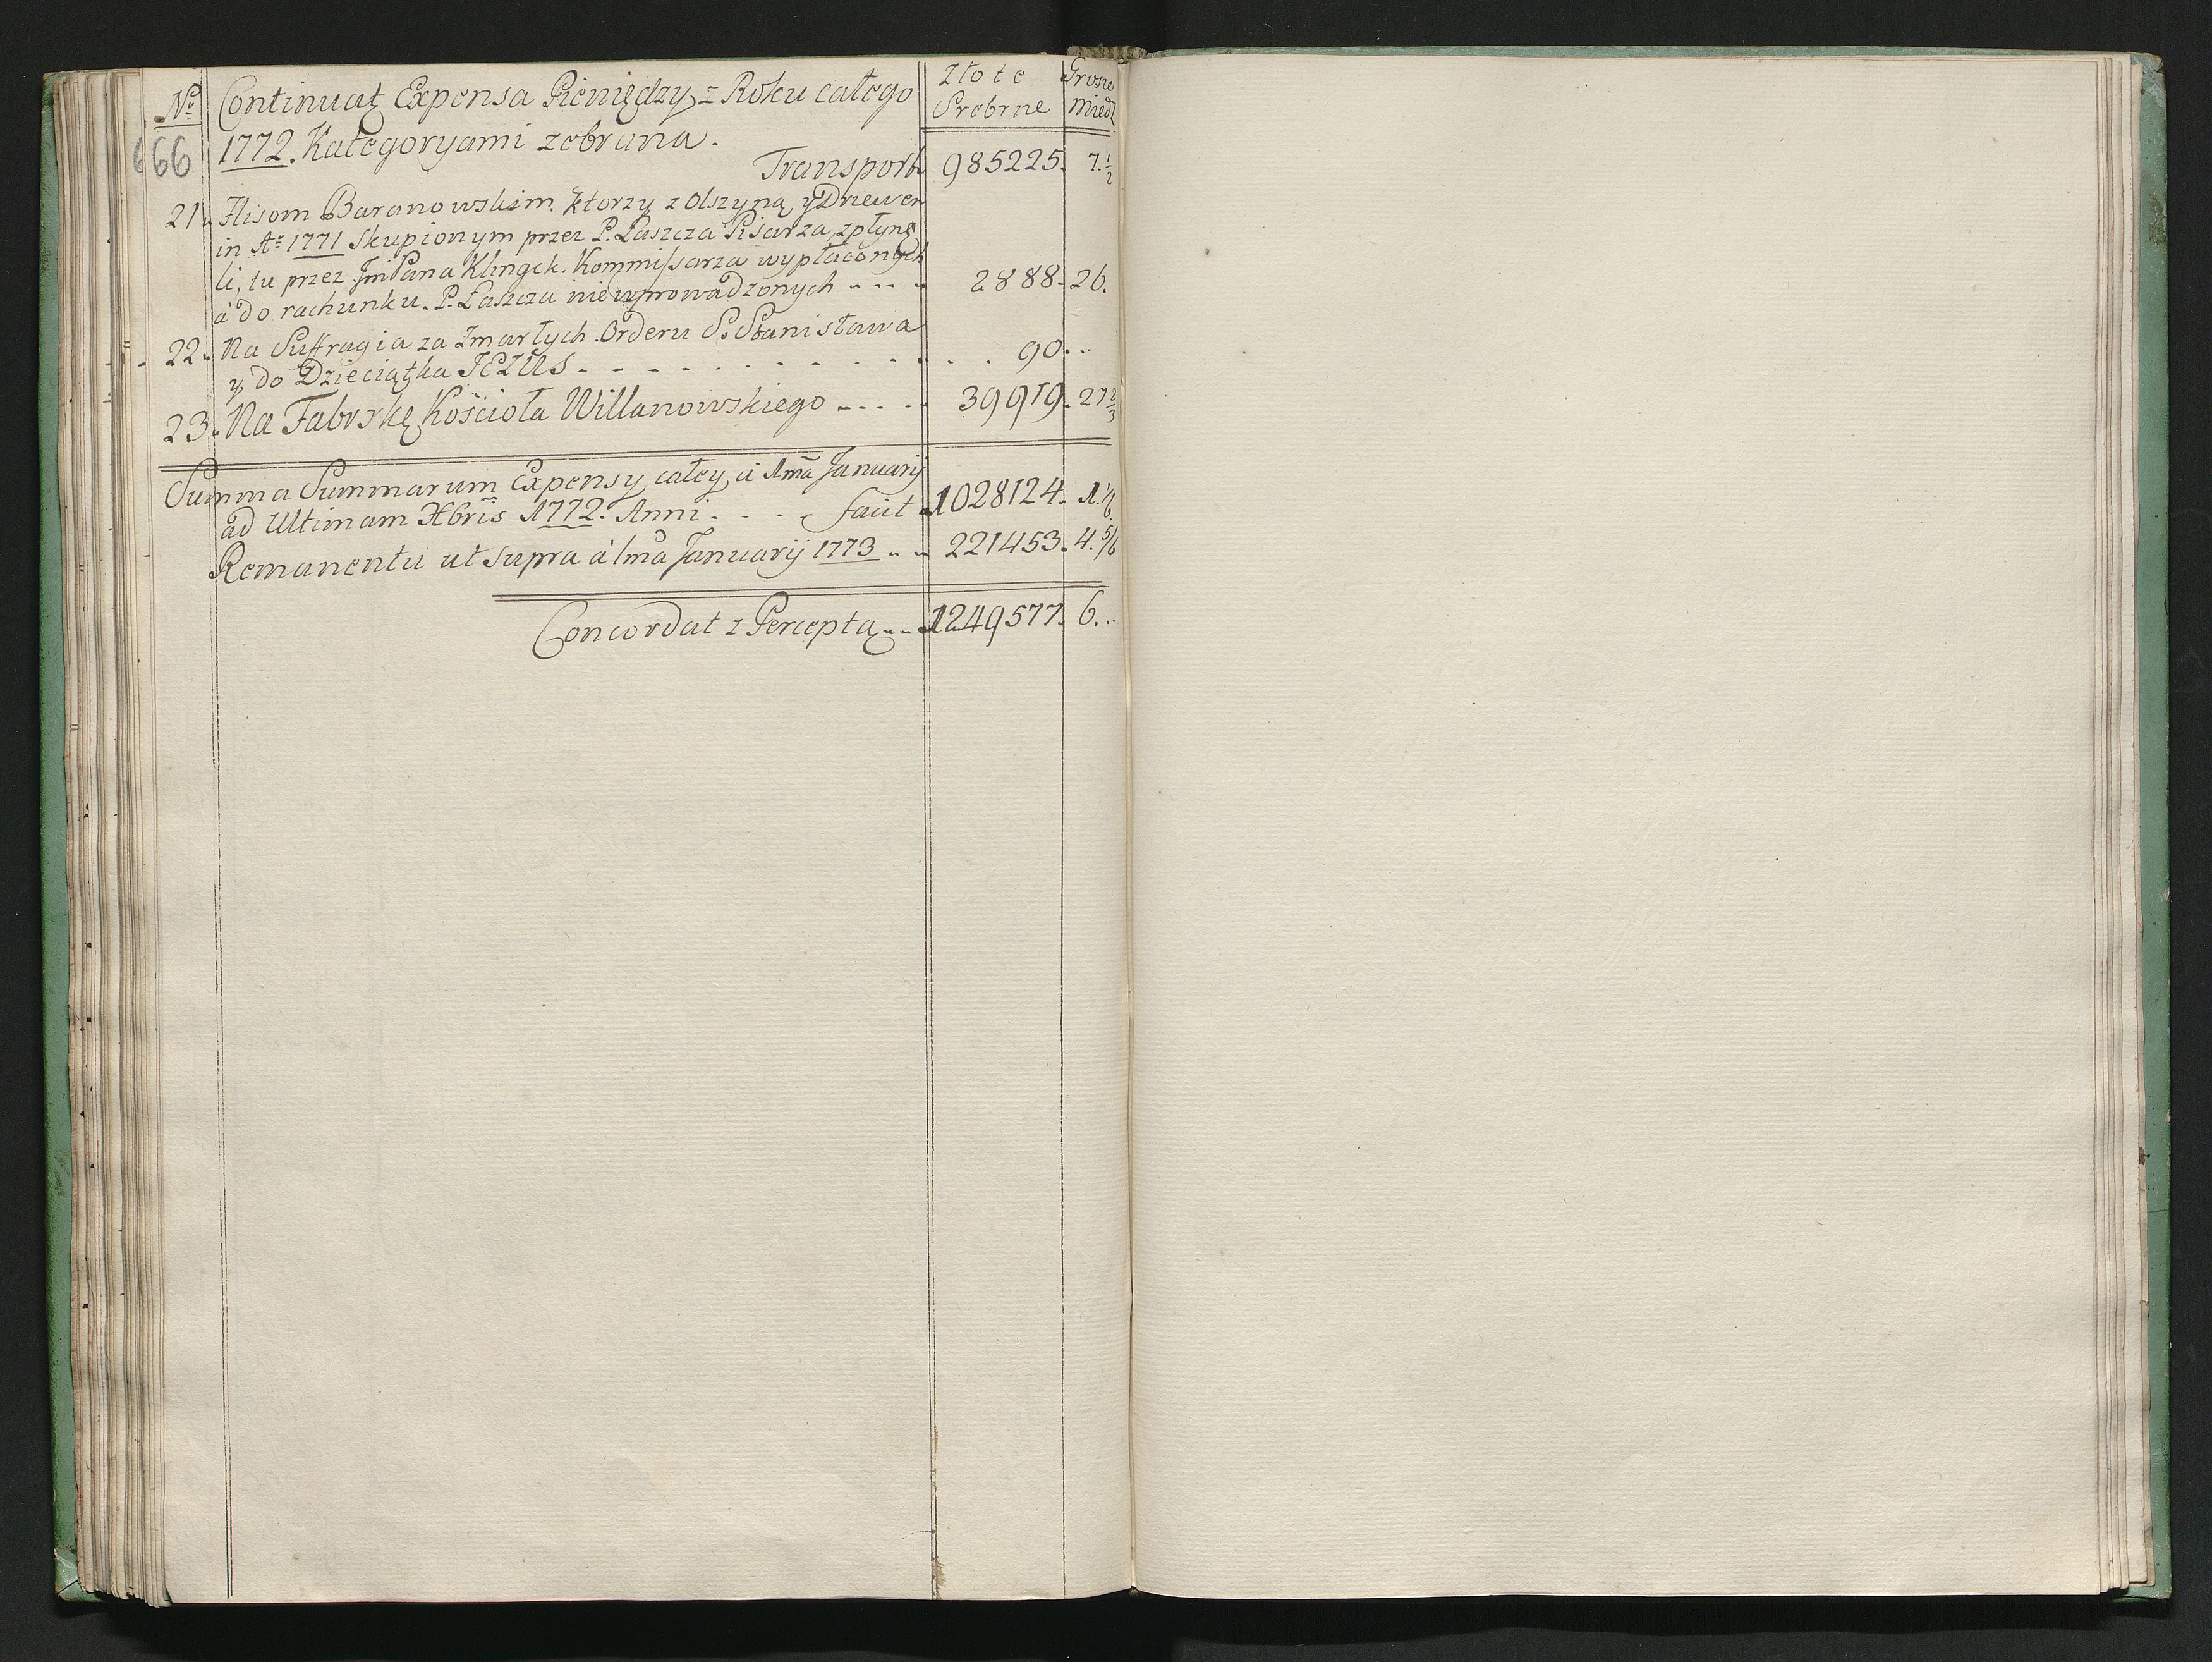 No Continuat Expensa Pieniędzy z Roku całego Złote Grosze
Srebrne Miedz
666 1772. Kategoryami zebrana.
Transport 985225. 7. 1/2
21. Flisom Baranowskim. ktorzy z Olszyną, y Drzewem
in Ao 1771 skupionym przez P. Łaszcza Pisarza, zpłynę
li, tu przez JmPana Klingek. Kommissarza wypłaconych
à do rachunku. P. Łaszcza niewprowadzonych - - - - 2888. 26.
22. Na Suffragia za Zmarłych. Orderu S. Stanisława
y do Dzieciątka JEZUS - - - - - - - - - - 90. ..
23. Na Fabrykę Kościoła Willanowskiego - - - - 39919. 27 2/3
Summa Summarum Expensy całey, à 1ma Januarij
ad Ultimam Xbris 1772. Anni - - - facit 1028124. 1. 1/6
Remanentu ut supra à 1ma Januarij 1773 - - 221453. 4. 5/6
Concordat z Perceptą - - 1249577. 6. ..